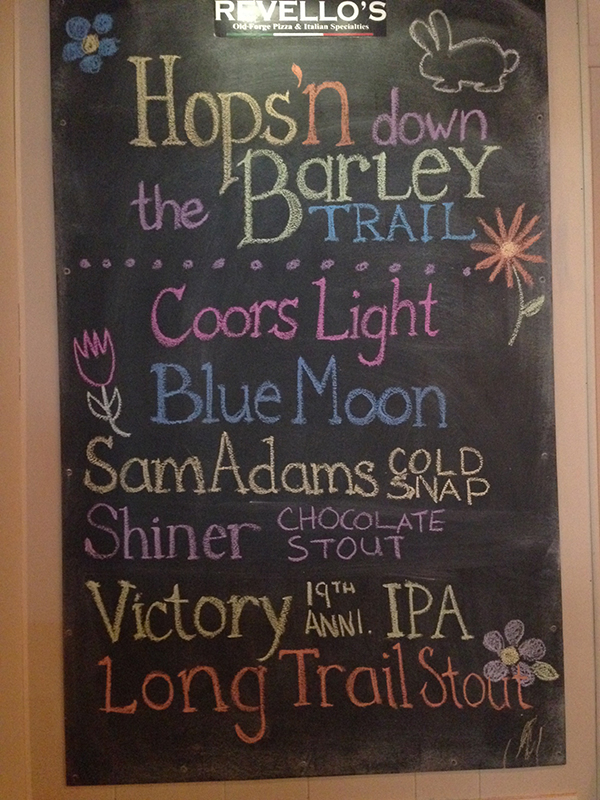 REVELLO'S
Old Forge Pizza & Italian Specialties
Hops'n down
the Barley
TRAIL
Coors Light
Blue Moon
Sam Adams COLD SNAP
Shiner CHOCOLATE STOUT
Victory 19TH ANNI. IPA
Long Trail Stout